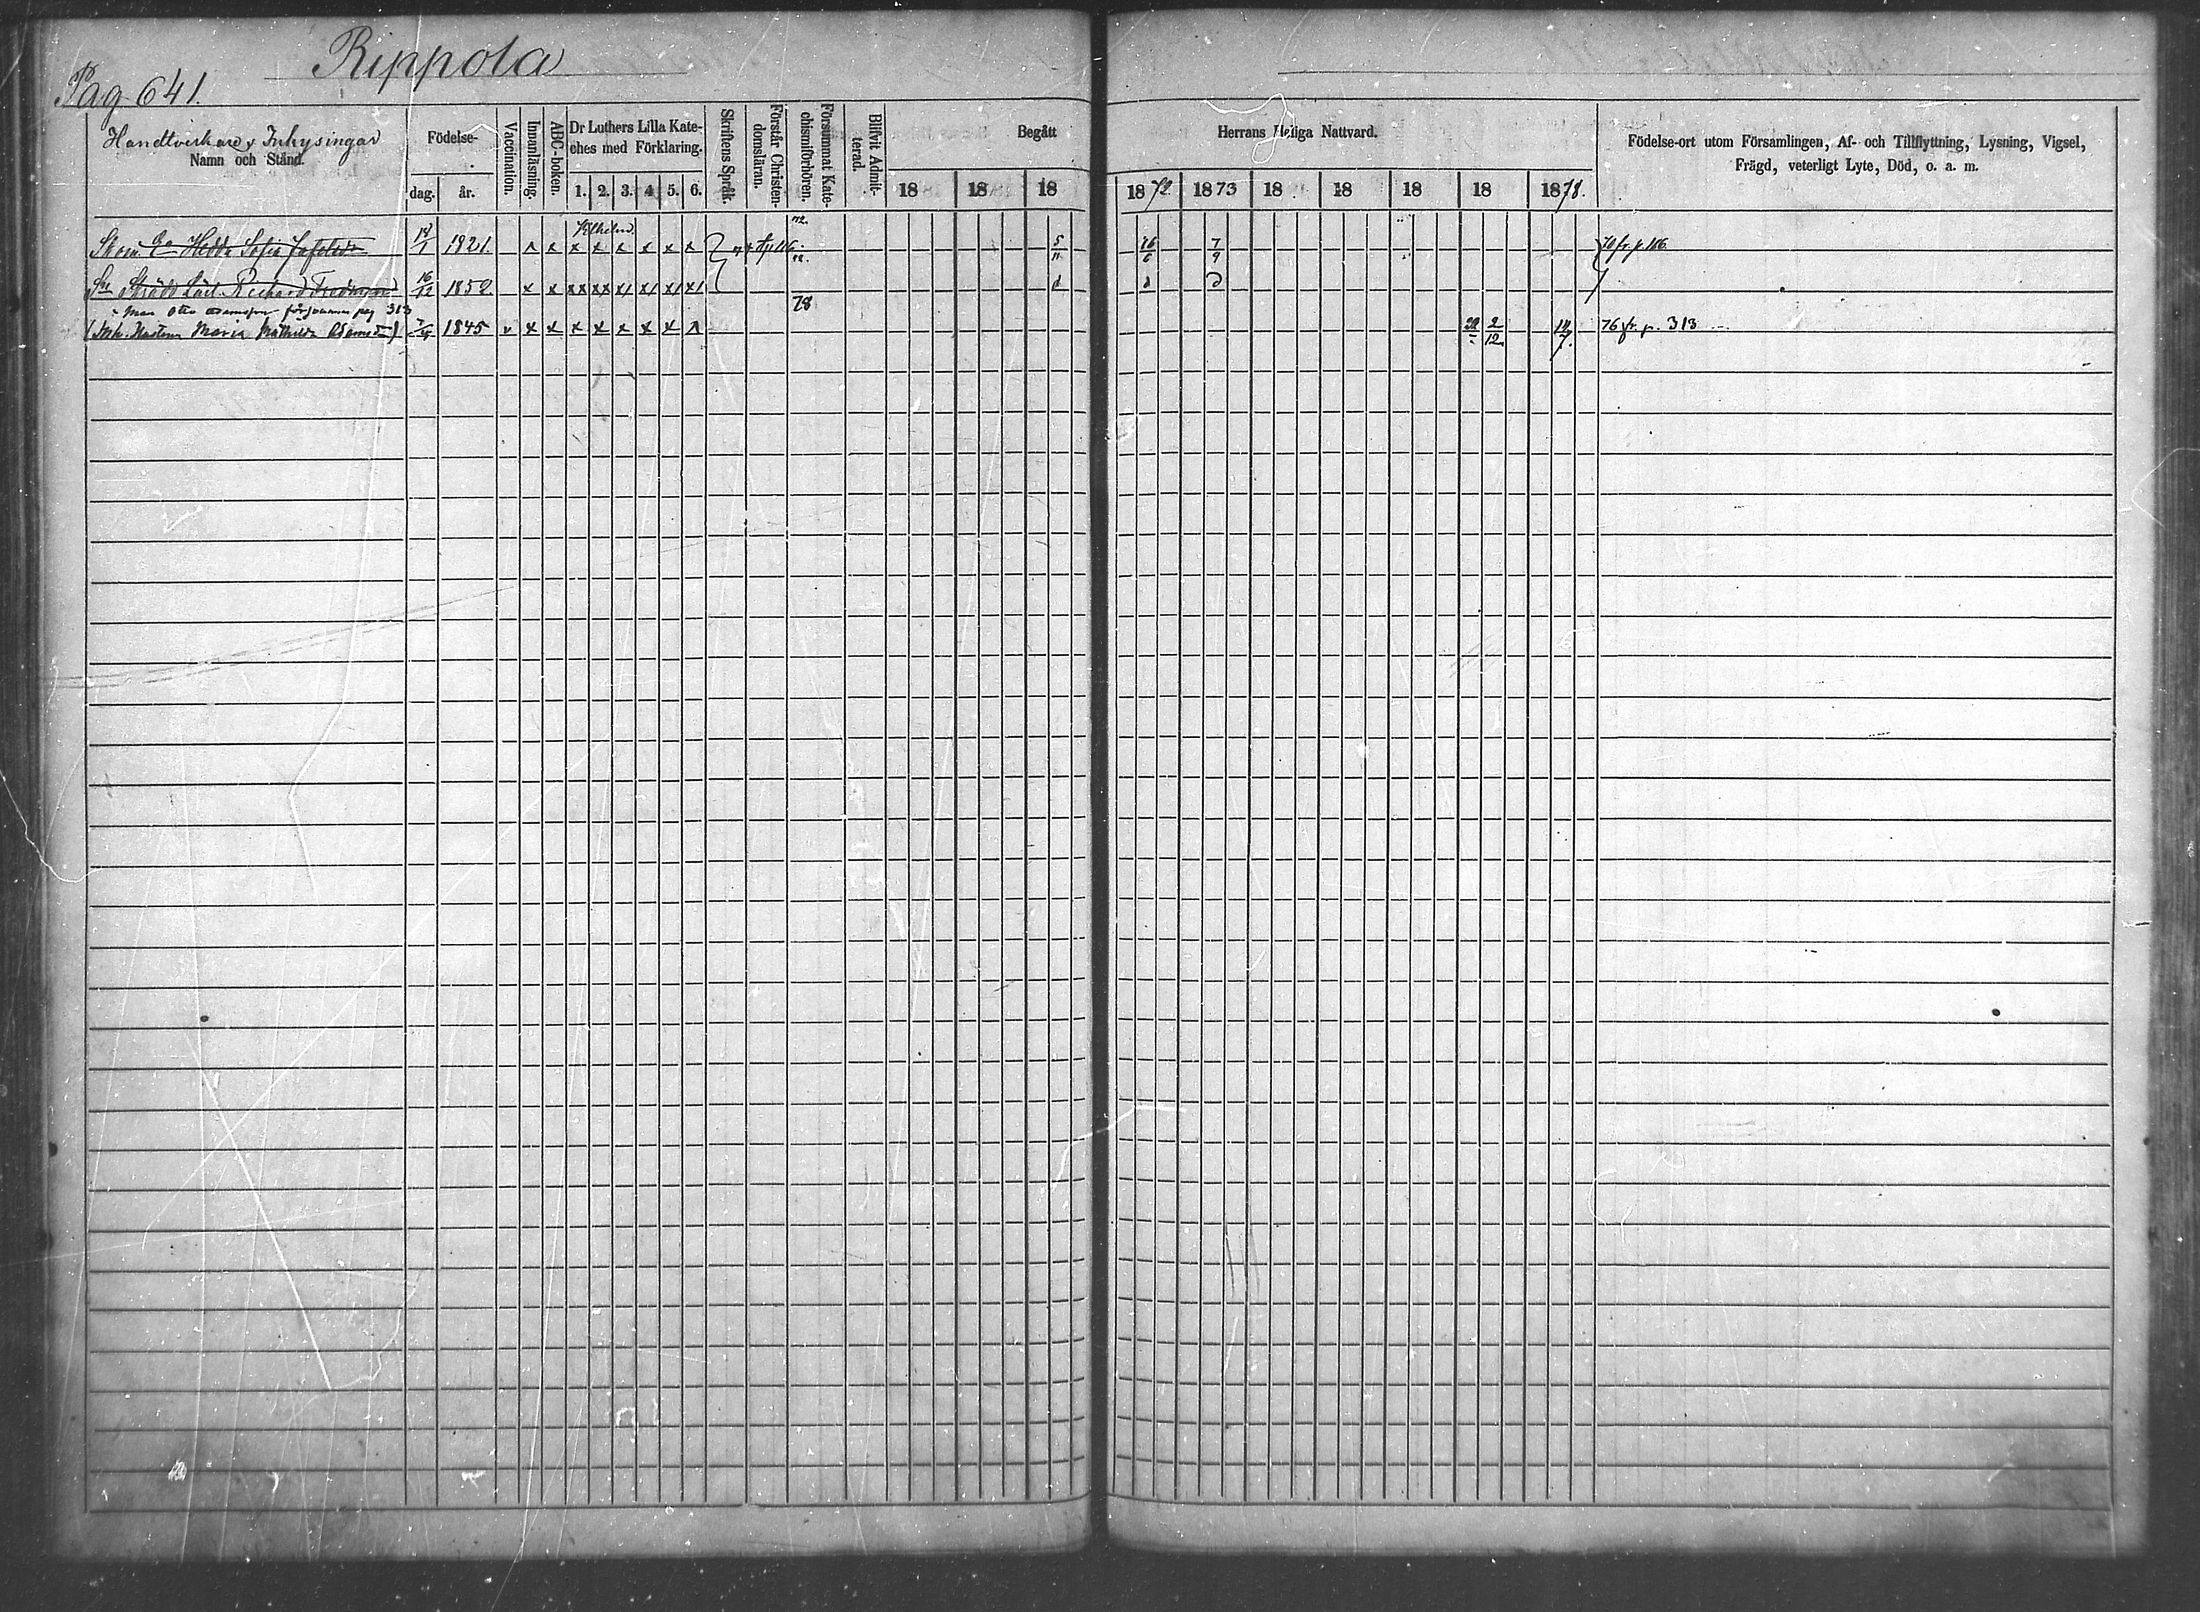 Rippola
Pag 641.
Handtverkare, Inhysingar
Namn och Stånd.
Födelse-
dag.
år.
Vaccination.
Innanläsning.
ABC-boken.
Dr Luthers Lilla Kate-
ches med Förklaring.
1. 2. 3. 4. 5. 6.
Skriftens Språk.
Förstår Christen-
domsläran.
Försummat Kate-
chismiförhören.
Blifvit Admit-
terad.
Begått Herrans Heliga Nattvard.
18 18 18 1872 1873 18 18 18 18 1878.
Födelse-ort utom Församlingen, Af- och Tillflyttning, Lysning, Vigsel,
Frägd, veterligt Lyte, Död, o. a. m.
Hedda Sofia 1821. 5/11 16/6 7/9 70 fr. p. 166
Richard 16/12 1852
78
Man Otto pag 313
Maria Mathilda 1845 2/12 76 fr. p. 313